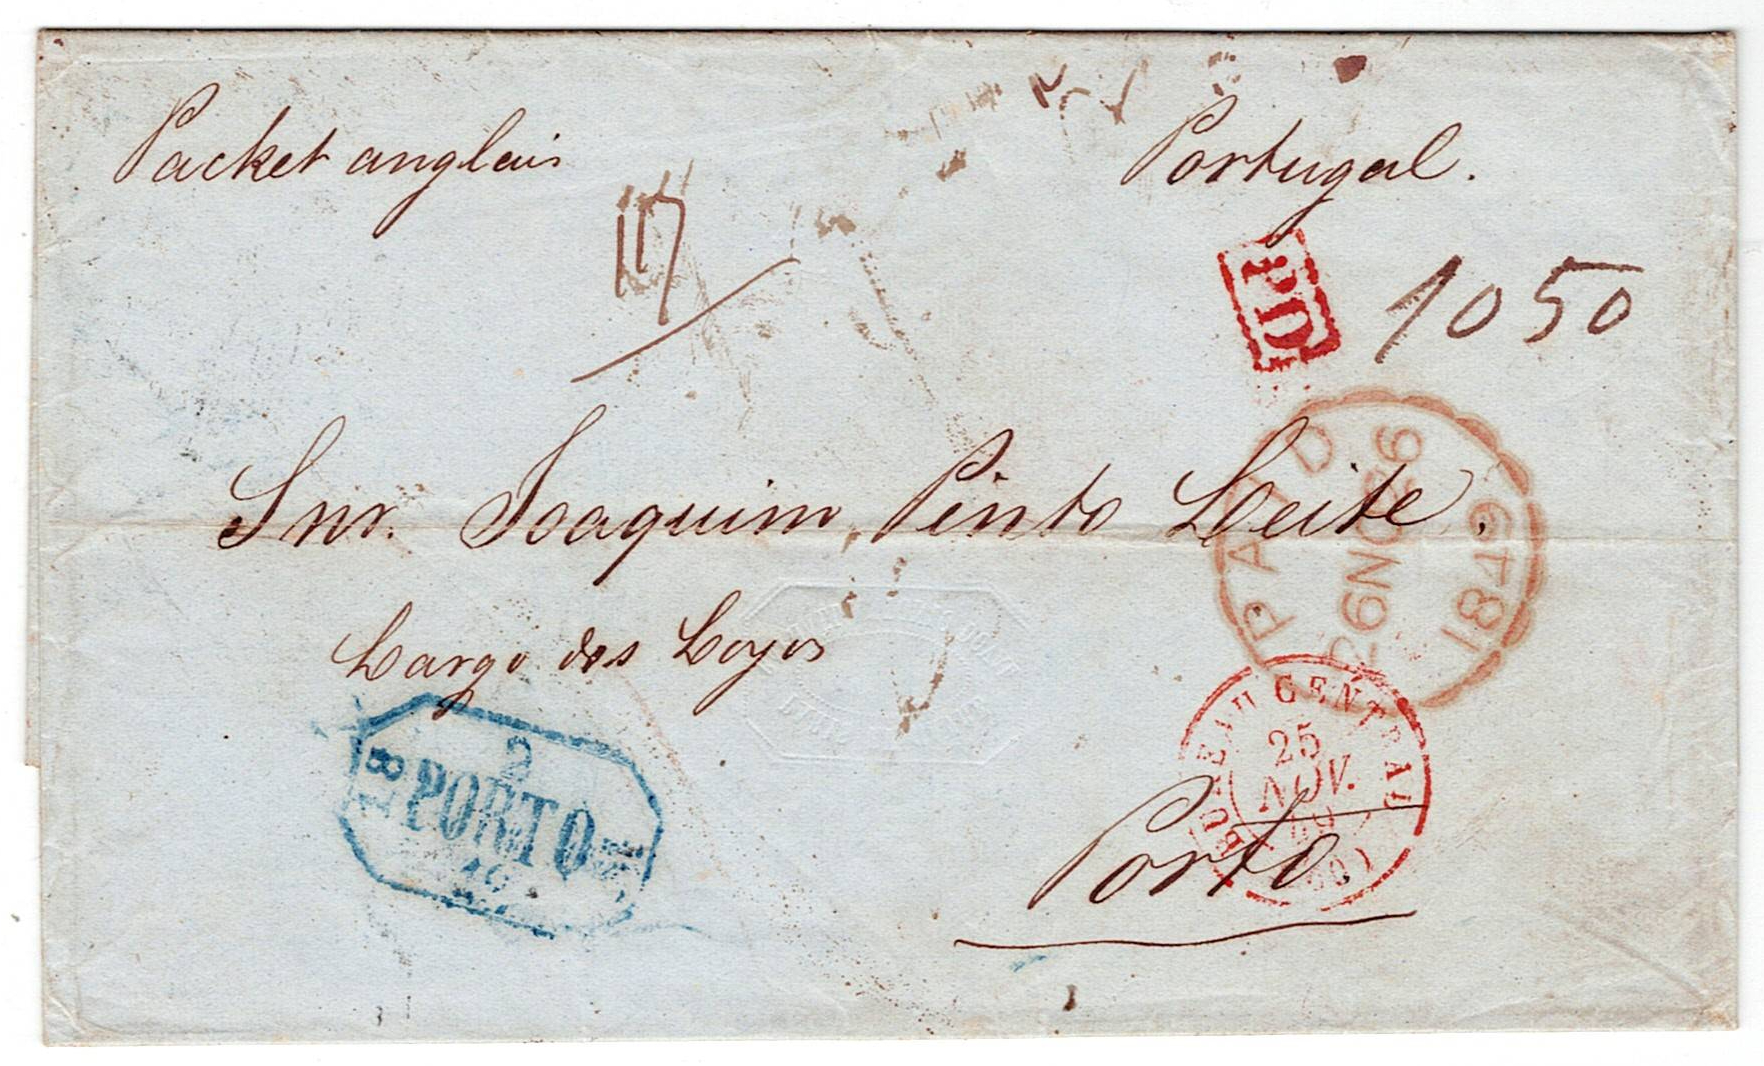 Packet anglais
Portugal.
PD
1050
Snr. Joaquim Pinto Leite.
PAID
26NO26
1849
Largo dos Loyos
BUREAU CENTRAL
25
NOV.
(60)
2
PORTO
18
Porto